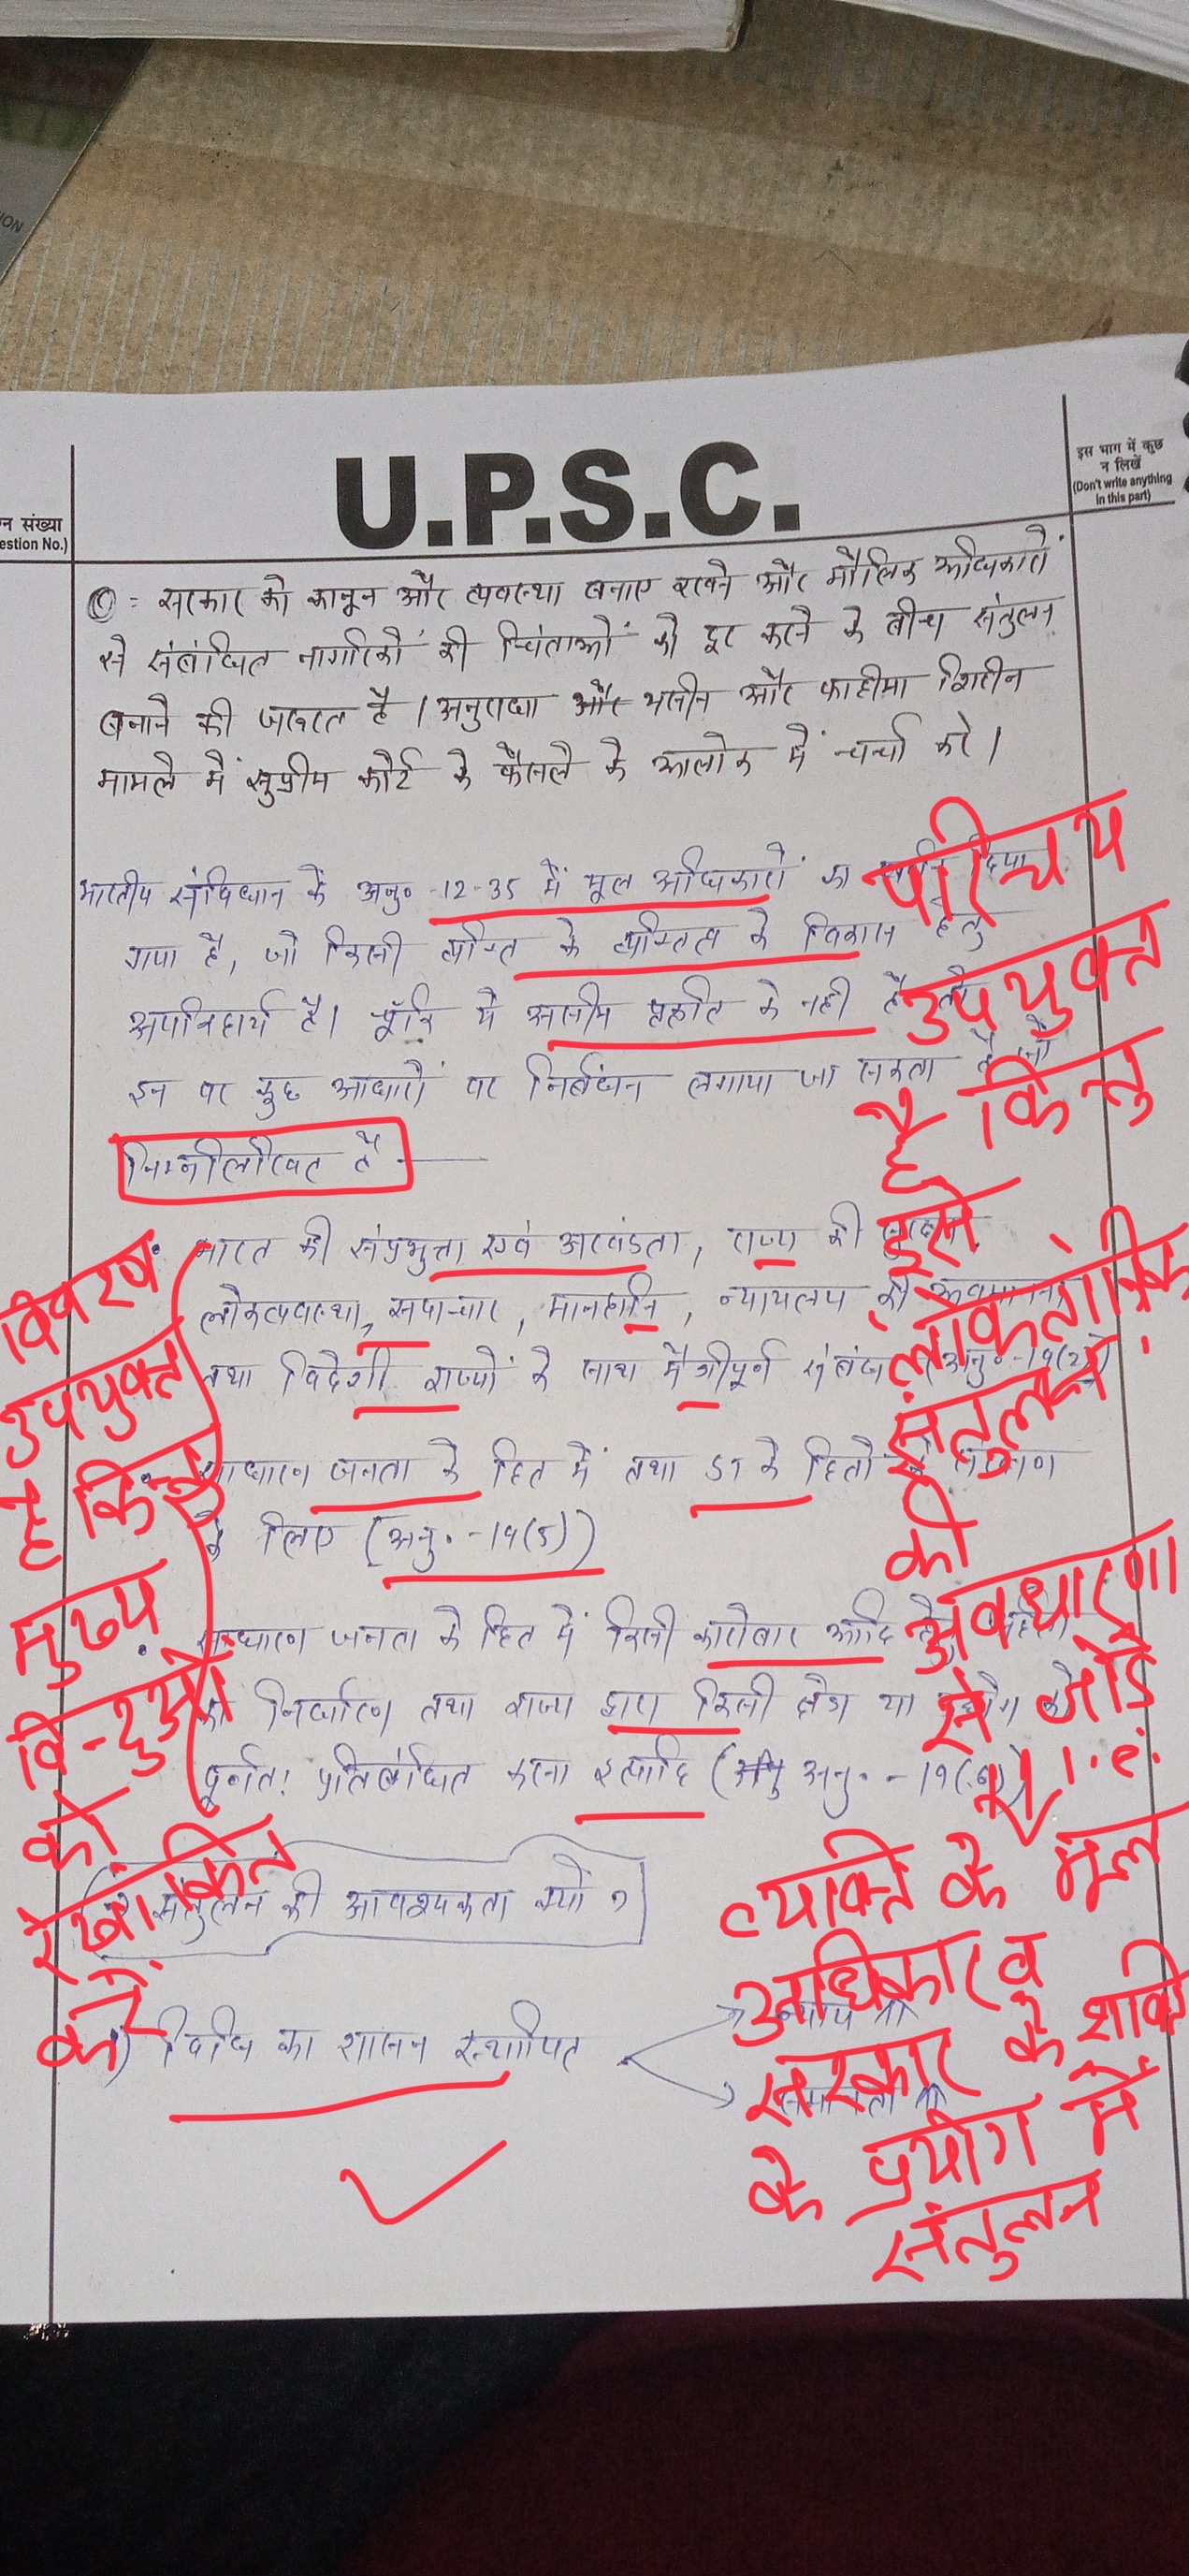 ION
U.P.S.C.
न संख्या
estion No.)
इस भाग में कुछ
न लिखें
(Don't write anything
in this part)
(C) = सरकार को कानून और व्यवस्था बनाए रखने और मौलिक अधिकारों
से संबंधित नागरिकों की चिंताओं को दूर करने के बीच संतुलन
बनाने की जरूरत है । अनुराधा और भसीन और फाहीमा शिरीन
मामले में सुप्रीम कोर्ट के फैसले के आलोक में चर्चा करे ।
भारतीय संविधान के अनु० -12-35 में मूल अधिकारों का दिया
गया है, जो किसी व्यक्ति के व्यक्तित्व के विकास हेतु
अपरिहार्य है। चूँकि ये असीम प्रकृति के नहीं है
इन पर कुछ आधारों पर निर्बंधन लगाया जा सकता है जो
निम्नलिखित है -
भारत की संप्रभुता एवं अखंडता, राज्य की सुरक्षा
लोकव्यवस्था, सदाचार, मानहानि, न्यायलय की अवमानना
तथा विदेशी राज्यों के साथ मैत्रीपूर्ण संबंध (अनु०-19(2))
साधारण जनता के हित में तथा ST के हितों के संरक्षण
के लिए (अनु०-19(5))
साधारण जनता के हित में किसी कारोबार आदि हेतु
का निर्धारण तथा राज्य द्वारा किसी क्षेत्र या उद्योग को
पूर्णतः प्रतिबंधित करना इत्यादि (अनु०-19(6))
संतुलन की आवश्यकता क्यों ?
विधि का शासन स्थापित
न्याय की
समानता की
परिचय
उपयुक्त
है किन्तु
इसे
लोकतांत्रिक
संतुलन
की
अवधारणा
से जोड़ें
i.e.
व्यक्ति के मूल
अधिकार व
सरकार के शक्ति
के प्रयोग में
संतुलन
विवरण
उपयुक्त
है किन्तु
मुख्य
बिन्दुओं
को
रेखांकित
करें